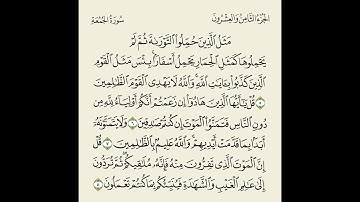 الجزء الثامن والعشرون
سورة الجمعة
مَثَلُ الَّذِينَ حُمِّلُوا التَّوْرَىٰةَ ثُمَّ لَمْ
يَحْمِلُوهَا كَمَثَلِ الْحِمَارِ يَحْمِلُ أَسْفَارًا بِئْسَ مَثَلُ الْقَوْمِ
الَّذِينَ كَذَّبُوا بِـَٔايَٰتِ اللَّهِ وَاللَّهُ لَا يَهْدِي الْقَوْمَ الظَّٰلِمِينَ
٥ قُلْ يَٰٓأَيُّهَا الَّذِينَ هَادُوٓا إِن زَعَمْتُمْ أَنَّكُمْ أَوْلِيَآءُ لِلَّهِ مِن
دُونِ النَّاسِ فَتَمَنَّوُا الْمَوْتَ إِن كُنتُمْ صَٰدِقِينَ ٦ وَلَا يَتَمَنَّوْنَهُۥٓ
أَبَدًۢا بِمَا قَدَّمَتْ أَيْدِيهِمْ وَاللَّهُ عَلِيمٌۢ بِالظَّٰلِمِينَ ٧ قُلْ
إِنَّ الْمَوْتَ الَّذِي تَفِرُّونَ مِنْهُ فَإِنَّهُۥ مُلَٰقِيكُمْ ثُمَّ تُرَدُّونَ
إِلَىٰ عَٰلِمِ الْغَيْبِ وَالشَّهَٰدَةِ فَيُنَبِّئُكُم بِمَا كُنتُمْ تَعْمَلُونَ ٨